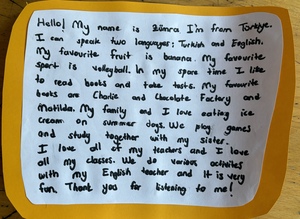 Hello! My name is Zümra I'm from Türkiye.
I can speak two languages: Turkish and English.
My favourite fruit is banana. My favourite
sport is volleyball. In my spare time I like
to read books and take tests. My favourite
books are Charlie and Chocolate Factory and
Matilda. My family and I love eating ice
cream on summer days. We play games
and study together with my sister.
I love all of my teachers and I love
all my classes. We do various activities
with my English teacher and It is very
fun. Thank you for listening to me!